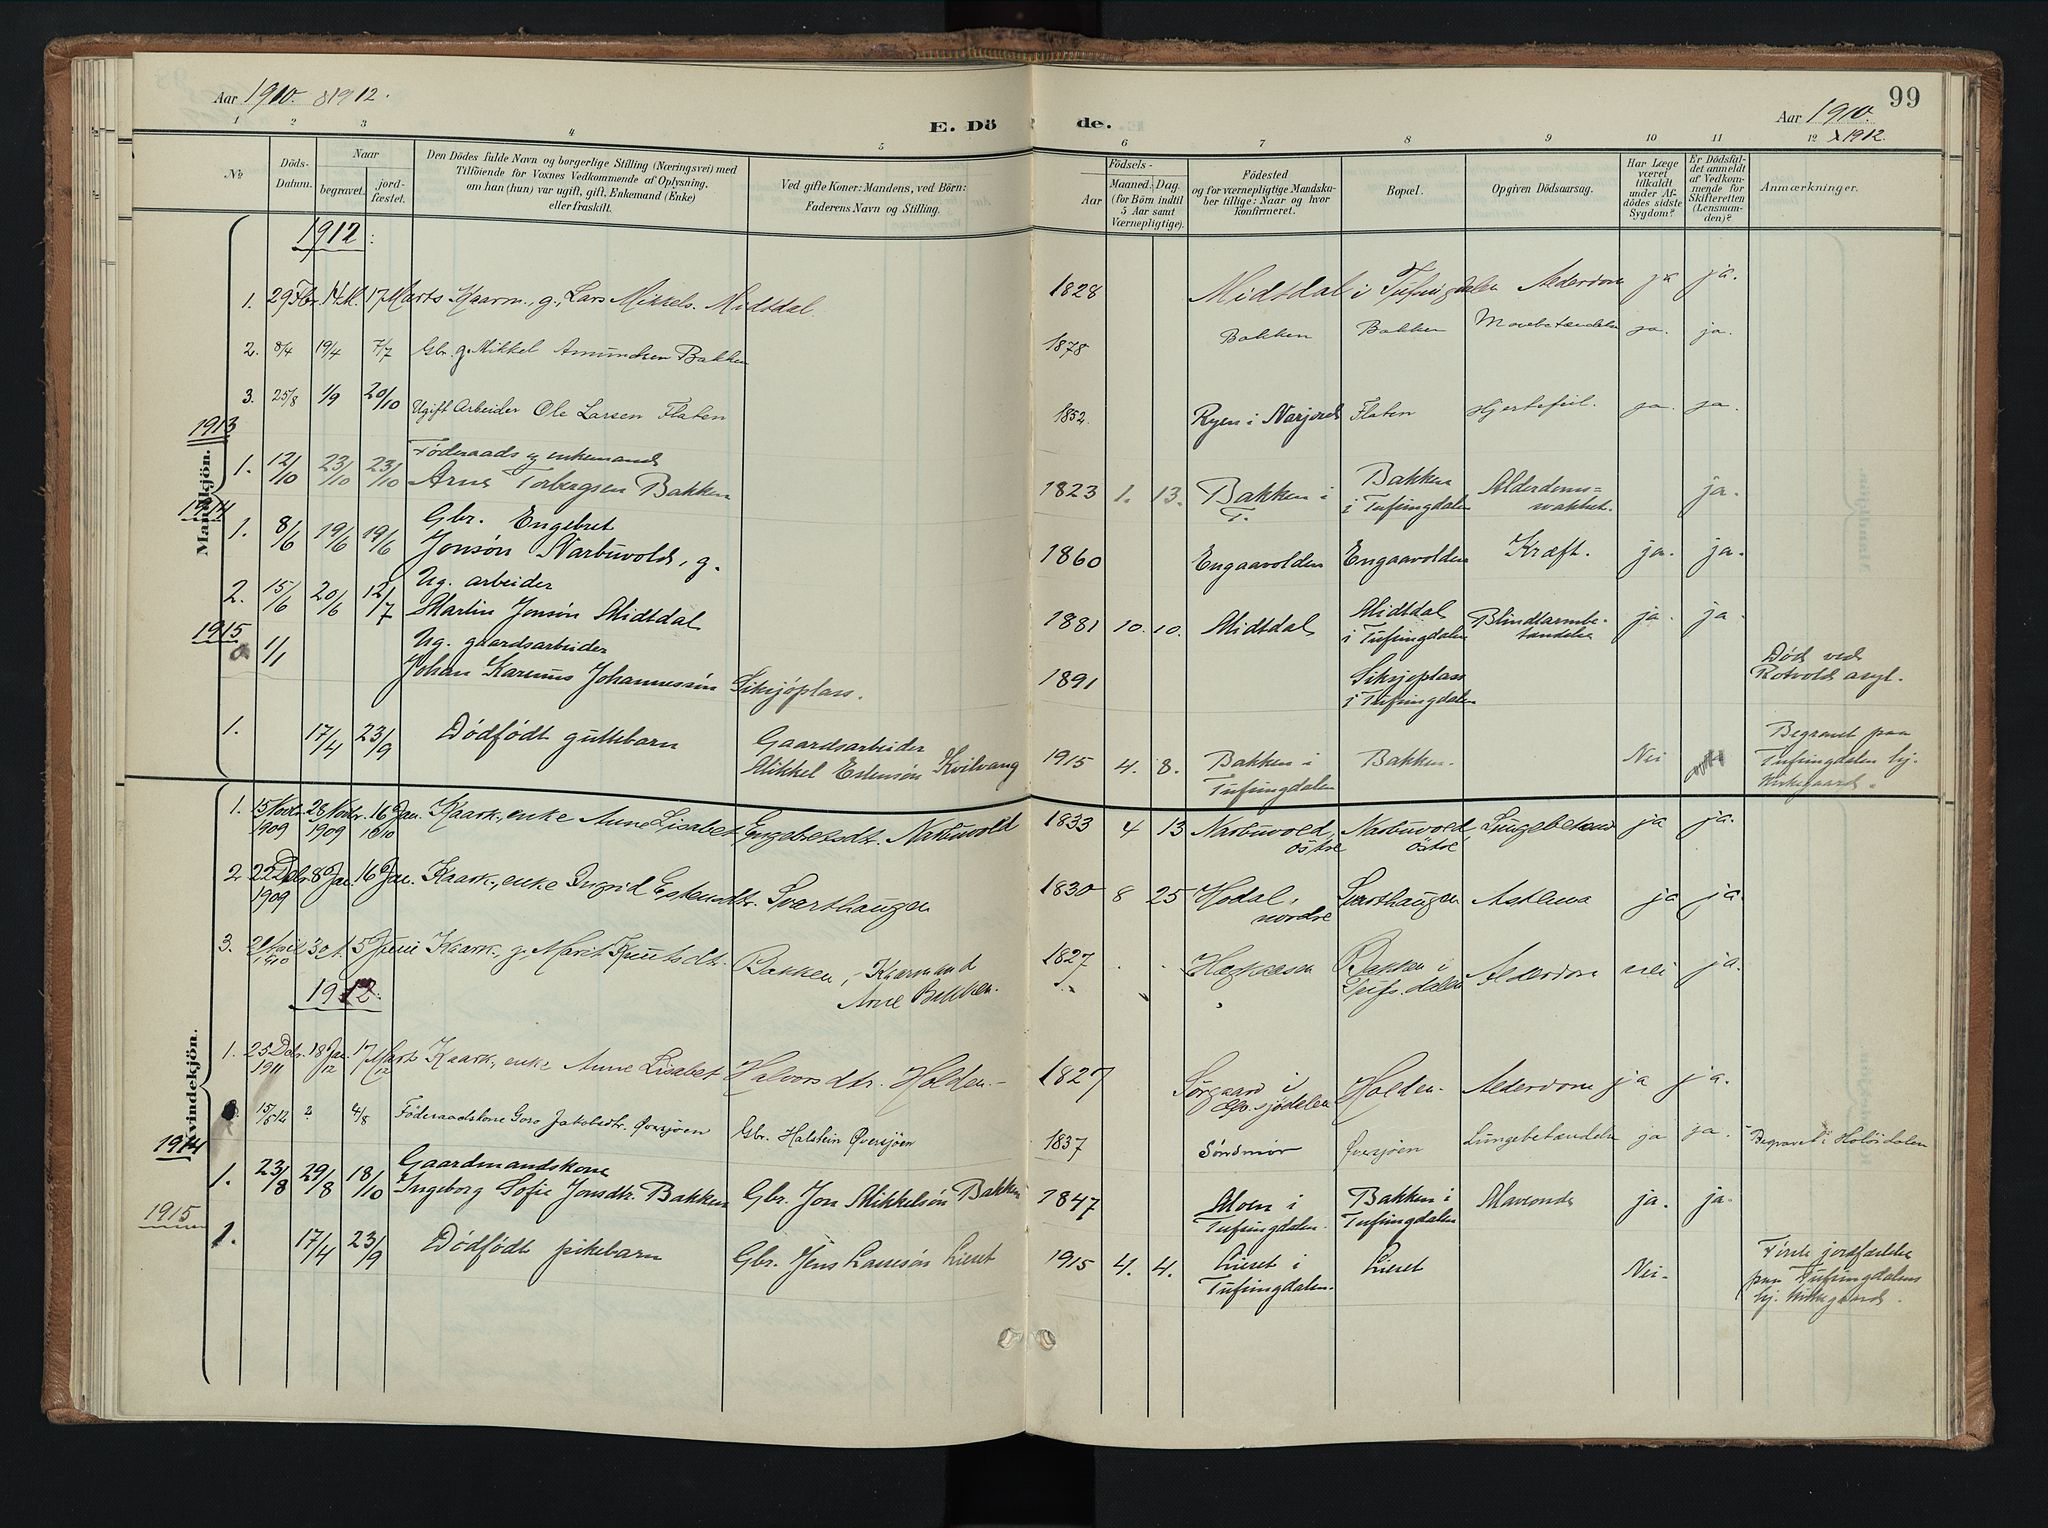 Aar 1910. & 1912.
E. Dö de.
99
Aar 1910.
& 1912.
1 2 3 4 5 6 7 8 9 10 11 12
No
Döds-
Datum.
Naar
begravet.
jord-
fæstet.
Den Dödes fulde Navn og borgerlige Stilling (Næringsvei) med
Tilföiende for Voxnes Vedkommende af Oplysning,
om han (hun) var ugift, gift, Enkemand (Enke)
eller fraskilt.
Ved gifte Koner: Mandens, ved Börn:
Faderens Navn og Stilling.
Födsels-
Aar
Maaned. Dag.
(for Börn indtil
5 Aar samt
Værnepligtige).
Födested
og for værnepligtige Mandska-
ber tillige: Naar og hvor
konfirmeret.
Bopæl.
Opgiven Dödsaarsag.
Har Læge
været
tilkaldt
under Af-
dödes sidste
Sygdom?
Er Dödsfal-
det anmeldt
af Vedkom-
mende for
Skifteretten
(Lensman-
den)?
Anmærkninger.
Mandkjön.
1912:
1. 29 Fbr. 14 M. 17 Marts Kaarm., g., Lars Mikkels. Midtdal 1828 Midtdal i Tufsingdalen Alderdom ja ja.
2. 8/4 19/4 7/7 Gbr. g. Mikkel Amundsen Bakken 1878 Bakken Bakken ja. ja.
3. 25/8 1/9 20/10 Ugift Arbeider Ole Larsen Flaten 1852 Ryen i Narjord Flaten Hjertefeil. ja. ja.
1913
Føderaads og enkemand
1. 12/10 23/10 23/10 Arne Torbergsen Bakken 1823 1. 13. Bakken i T. Bakken i Tufsingdalen Alderdoms= ja.
1914
Gbr. Engebret
1. 8/6 19/6 19/6 Jonsøn Narbuvold, g. 1860 Engaavolden Engaavolden Kræft. ja. ja.
Ug. arbeider
2. 15/6 20/6 12/7 Martin Jonsøn Midtdal 1881 10. 10. Midtdal Midtdal i Tufsingdalen Blindtarmbe-
tændelse ja. ja.
1915
Ug. gaardsarbeider
1/1 Johan Karenus Johannessøn Sikrjøplass. 1891 Sikrjøplass i Tufsingdalen Død ved
Rotvold asyl.
1. 17/4 23/9 Dödfödt guttebarn Gaardsarbeider
Mikkel Estensøn Kvilvang 1915 4. 8. Bakken i Tufsingdalen Bakken. Nei Begravet paa
Tufsingdalen
kirkegaard.
Kvindekjön.
1. 15 Novbr. 1909 28 Novbr. 1909 16 Jan. 1910 Kaark., enke Anne Lisabet Engebretsdtr. Narbuvold 1833 4 13 Narbuvold, östre Narbuvold, östre ja ja.
2. 22 Dcbr. 1909 8 Jan. 16 Jan. Kaark., enke Ingrid Estensdtr. Sværthaugen 1830 8 25 Hodal, nordre Sværthaugen Astma ja ja.
3. 21 April 1910 30 A. 5 Juni Kaark., g., Marit Knutsdtr. Bakken, Kaarmand
Arne Bakken. 1827 Bakken i Tufs. dalen Alderdom nei ja.
1912:
1. 25 Dcbr. 1911 18 Jan. 12 17 Marts 12 Kaark., enke Anne Lisabet Halvorsdtr. Holden. 1827 Sørgaard i Holden. Alderdom ja ja.
15/6-12 4/8 Föderaadskone Goro Jakobsdtr. Øversjøen Gbr. Halstein Øversjøen 1837 Søndmør Øversjøen Lungebetændelse ja ja. Begravet i Holöidalen
1914
Gaardmandskone
1. 23/8 29/8 18/10 Ingeborg Sofie Jonsdtr. Bakken Gbr. Jon Mikkelsøn Bakken 1847 Moen i Tufsingdalen. Bakken i Tufsingdalen Maveonde ja. ja.
1915
1. 17/4 23/9 Dödfödt pikebarn Gbr. Jens Larssøn Lieset 1915 4. 4. Lieset i Tufsingdalen. Lieset Nei. Første jordfæstelse
paa Tufsingdalens
ny. kirkegaard.